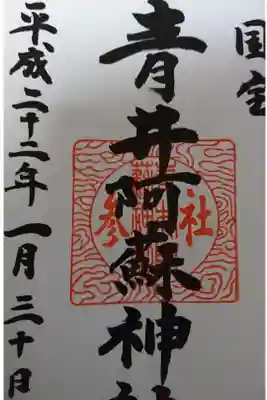 国宝
青井阿蘇神社
参社
平成二十二年一月三十日